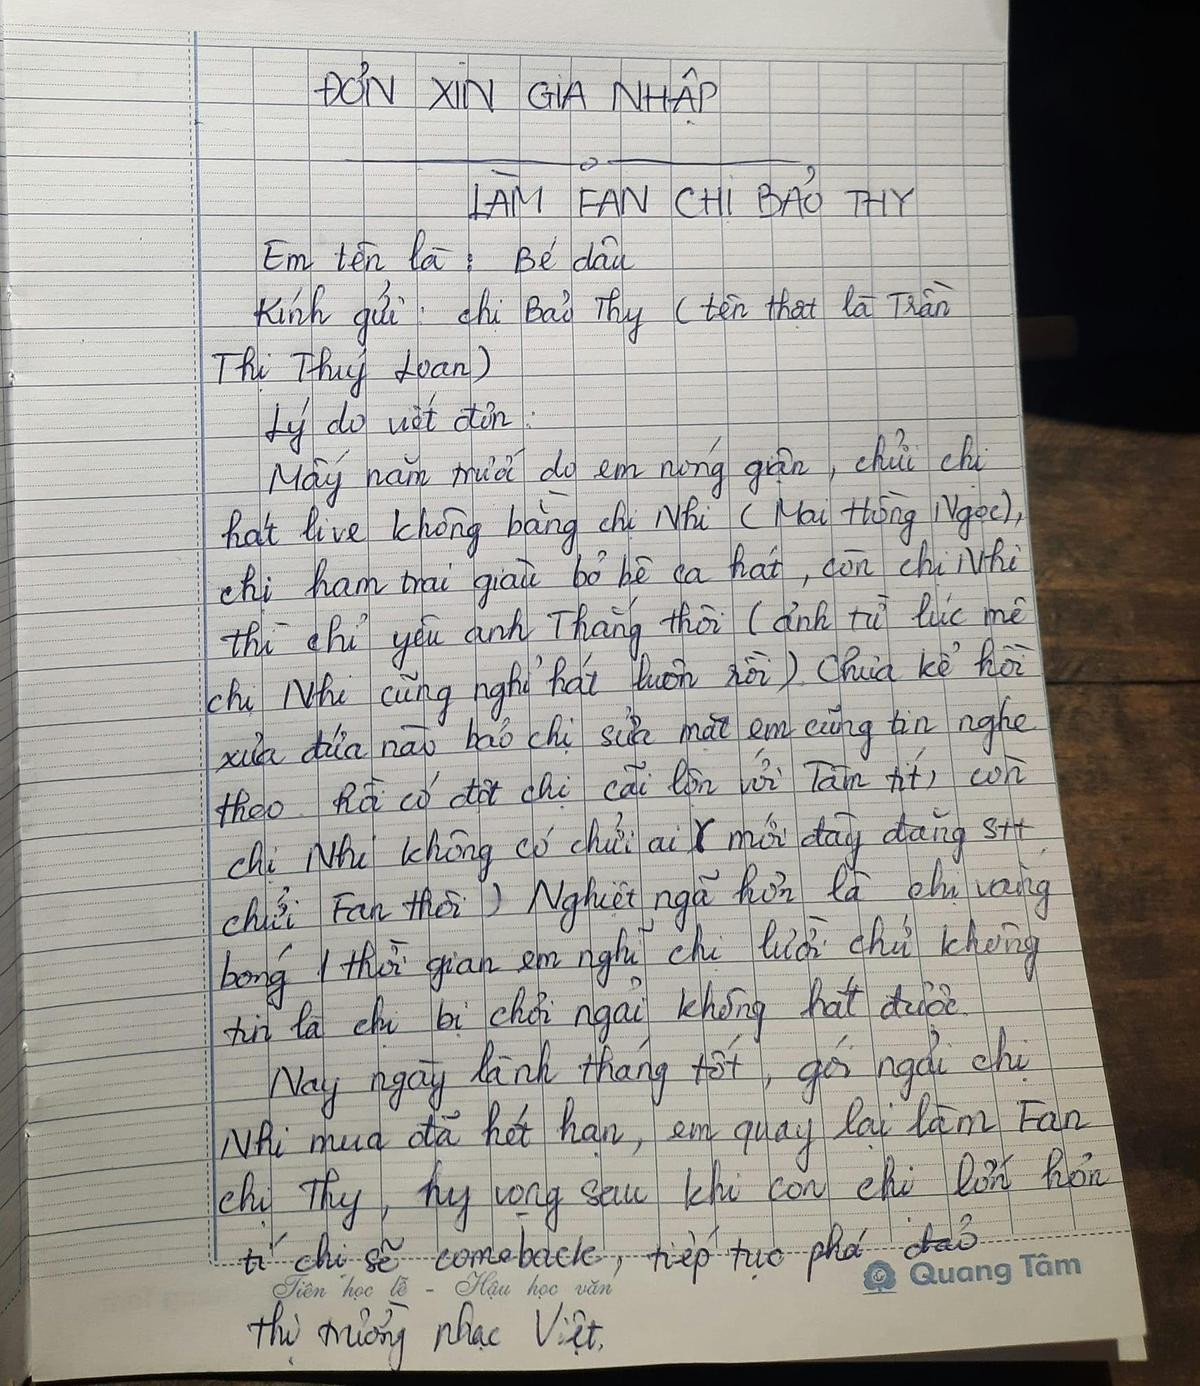 ĐƠN XIN GIA NHẬP
LÀM FAN CHỊ BẢO THY
Em tên là : Bé dâu
Kính gửi : chị Bảo Thy ( tên thật là Trần
Thị Thuý Loan )
Lý do viết đơn :
Mấy năm trước do em nóng giận, chửi chị
hát live không bằng chị Nhi ( Mai Hồng Ngọc ),
chị ham trai giàu bỏ bê ca hát, còn chị Nhi
thì chỉ yêu anh Thắng thôi ( ảnh từ lúc mê
chị Nhi cũng nghỉ hát luôn rồi ). Chưa kể hồi
xưa đứa nào bảo chị sửa mặt em cũng tin nghe
theo. Rồi có đợt chị cãi lộn với Tâm tít, còn
chị Nhi không có chửi ai ( mới đây đăng stt
chửi Fan thôi ) Nghiệt ngã hơn là chị vắng
bóng 1 thời gian em nghĩ chị lười chứ không
tin là chị bị chơi ngải không hát được.
Nay ngày lành tháng tốt, gói ngải chị
Nhi mua đã hết hạn, em quay lại làm Fan
chị Thy, hy vọng sau khi con chị lớn hơn
tí chị sẽ comeback, tiếp tục phá đảo
Tiên học lễ - Hậu học văn
Quang Tâm
thị trường nhạc Việt.